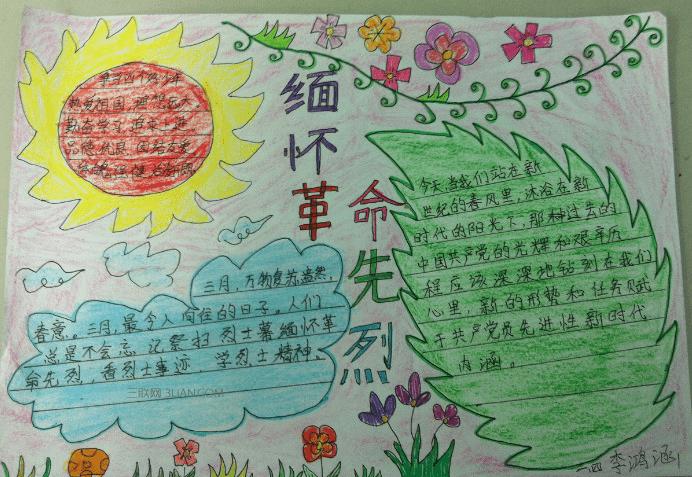 缅怀革
命先烈
争当四个好少年
热爱祖国 理想远大
勤奋学习 追求上进
品德优良 团结友爱
体魄强健 活泼开朗
三月，万物复苏盎然，
春意。三月，最令人向往的日子。人们
总是不会忘记祭扫烈士墓缅怀革
命先烈，看烈士事迹，学烈士精神、
三联网 3LIAN.COM
今天当我们站在新
世纪的春风里，沐浴在新
时代的阳光下，那种过去的
中国共产党的光辉和艰辛历
程应该深深地钻刻在我们
心里，新的形势和任务赋
于共产党员先进性新时代
内涵。
一四 李鸿涵